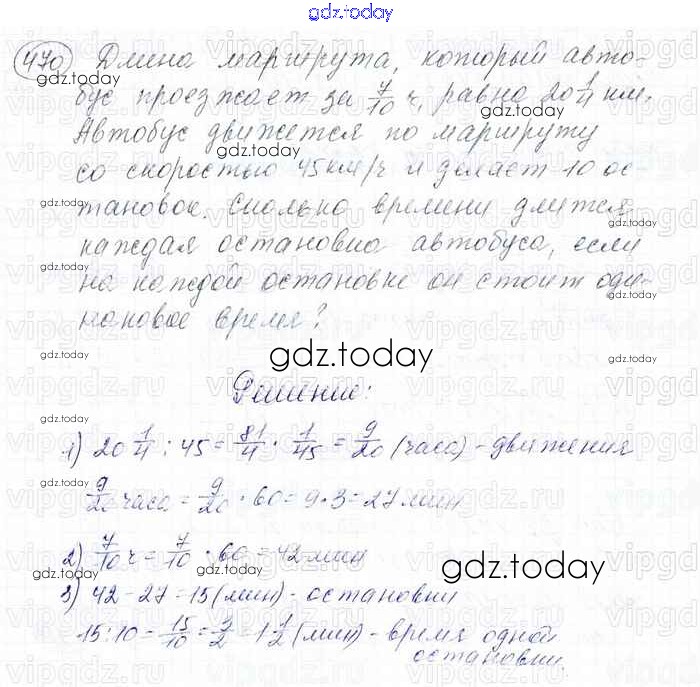 gdz.today
470 Длина маршрута, который авто-
бус проезжает за 7/10 ч, равна 20 1/4 км.
Автобус движется по маршруту
со скоростью 45 км/ч и делает 10 ос-
тановок. Сколько времени длится
каждая остановка автобуса, если
на каждой остановке он стоит оди-
наковое время?
gdz.today
Решение:
1) 20 1/4 : 45 = 81/4 · 1/45 = 9/20 (часа) - движения
9/20 часа = 9/20 · 60 = 9 · 3 = 27 мин
2) 7/10 ч = 7/10 · 60 = 42 мин
3) 42 - 27 = 15 (мин) - остановки
15 : 10 = 15/10 = 3/2 = 1 1/2 (мин) - время одной
остановки.